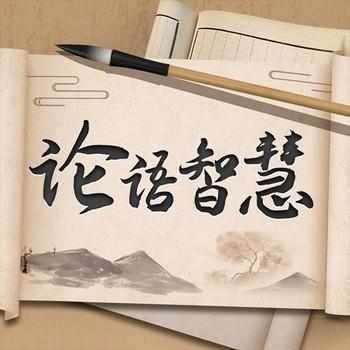 论语智慧